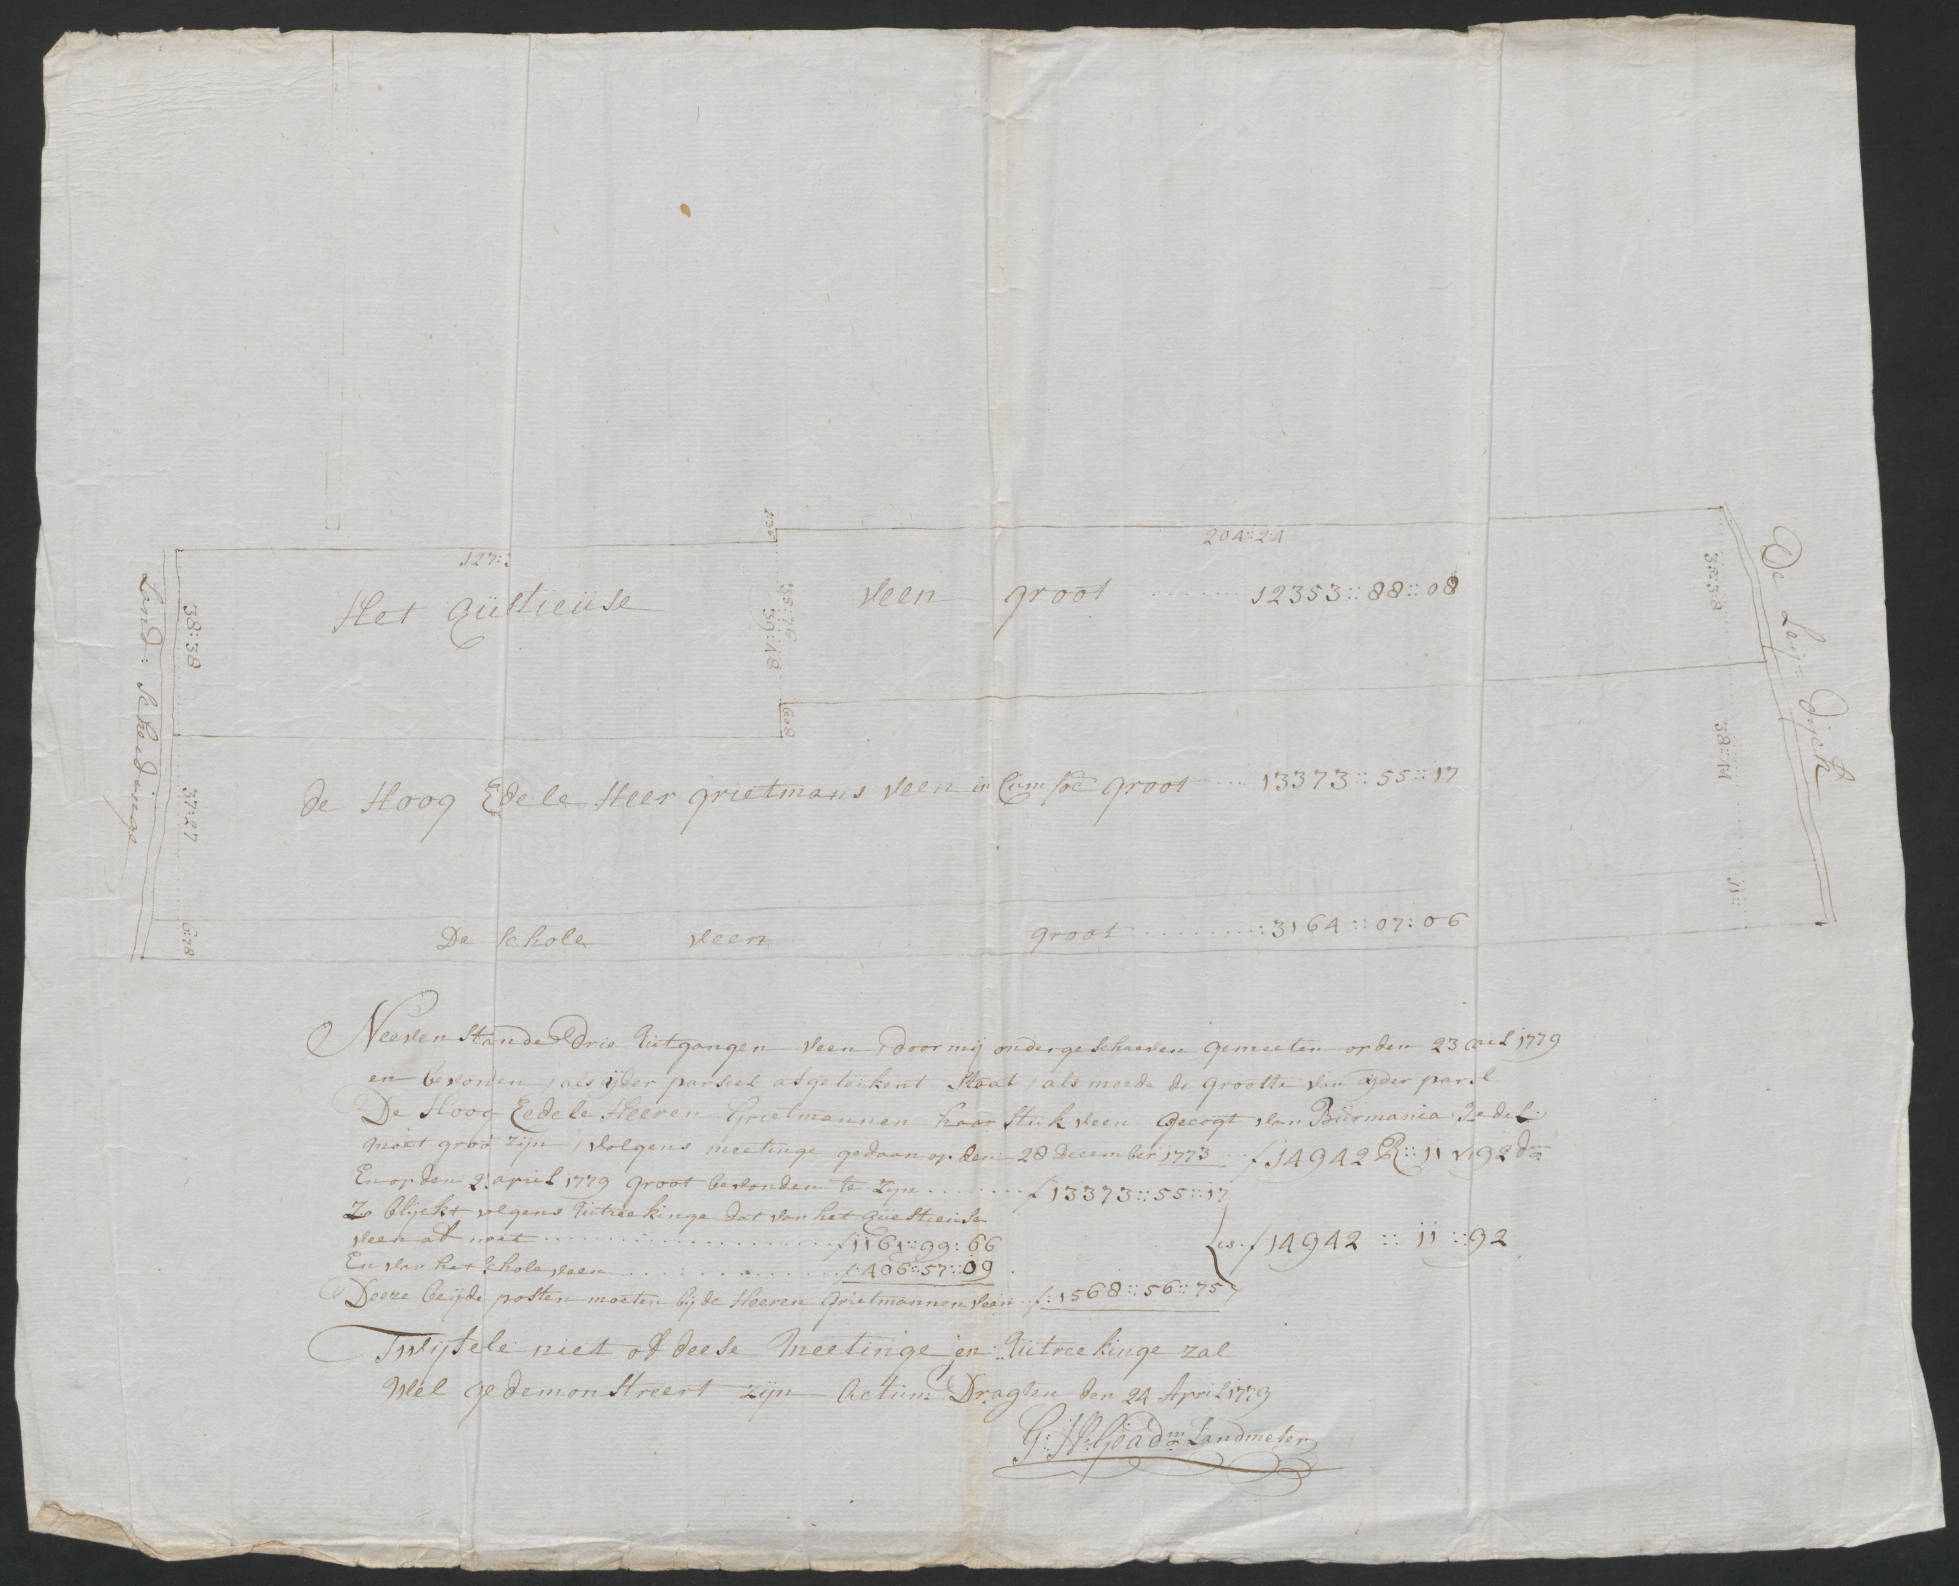 204::24
127::
Het Qüestieüse veen groot 12353::88::08
38::38
35::76
39::48
6::8
38::38
De Leijn Dijck
Land: Scheidinge
de Hoog Edele Heer grietmans veen in Comsoe groot 13373::55::17
37::27
38::14
De schole veen groot 3164::07::06
6::78
11::
Neevenstande drie Uitgangen veen, door mij ondergeschreven gemeeten op den 23 Apil 1779
en bevonen, als ijder parseel afgeteikent staat, als meede de grootte van ijder parsl
De Hoog Eedele Heeren Grietmannen haar stuk veen gecogt van Bürmania
moet groo zijn, volgens meetinge gedaan op den 28 December 1773 ƒ 14942 R:: 11 v: 92 dm
En op den 23 april 1779 groot bevonden te zijn ƒ 13373::55::17
Zo blijckt volgens Uitreekinge dat van het Qüestieüse
veen af moet ƒ 1161::99::66
is ƒ 14942::11::92
En van het schole veen ƒ 406::57::09
Deeze beijde posten moeten bij de Heeren Grietmannen veen ƒ: 1568::56::75
Twijfele niet of deese Meetinge en Uitreekinge zal
wel gedemonstreert zijn Actüm Dragten den 24 April 1779
G: W: Goadm Landmeter